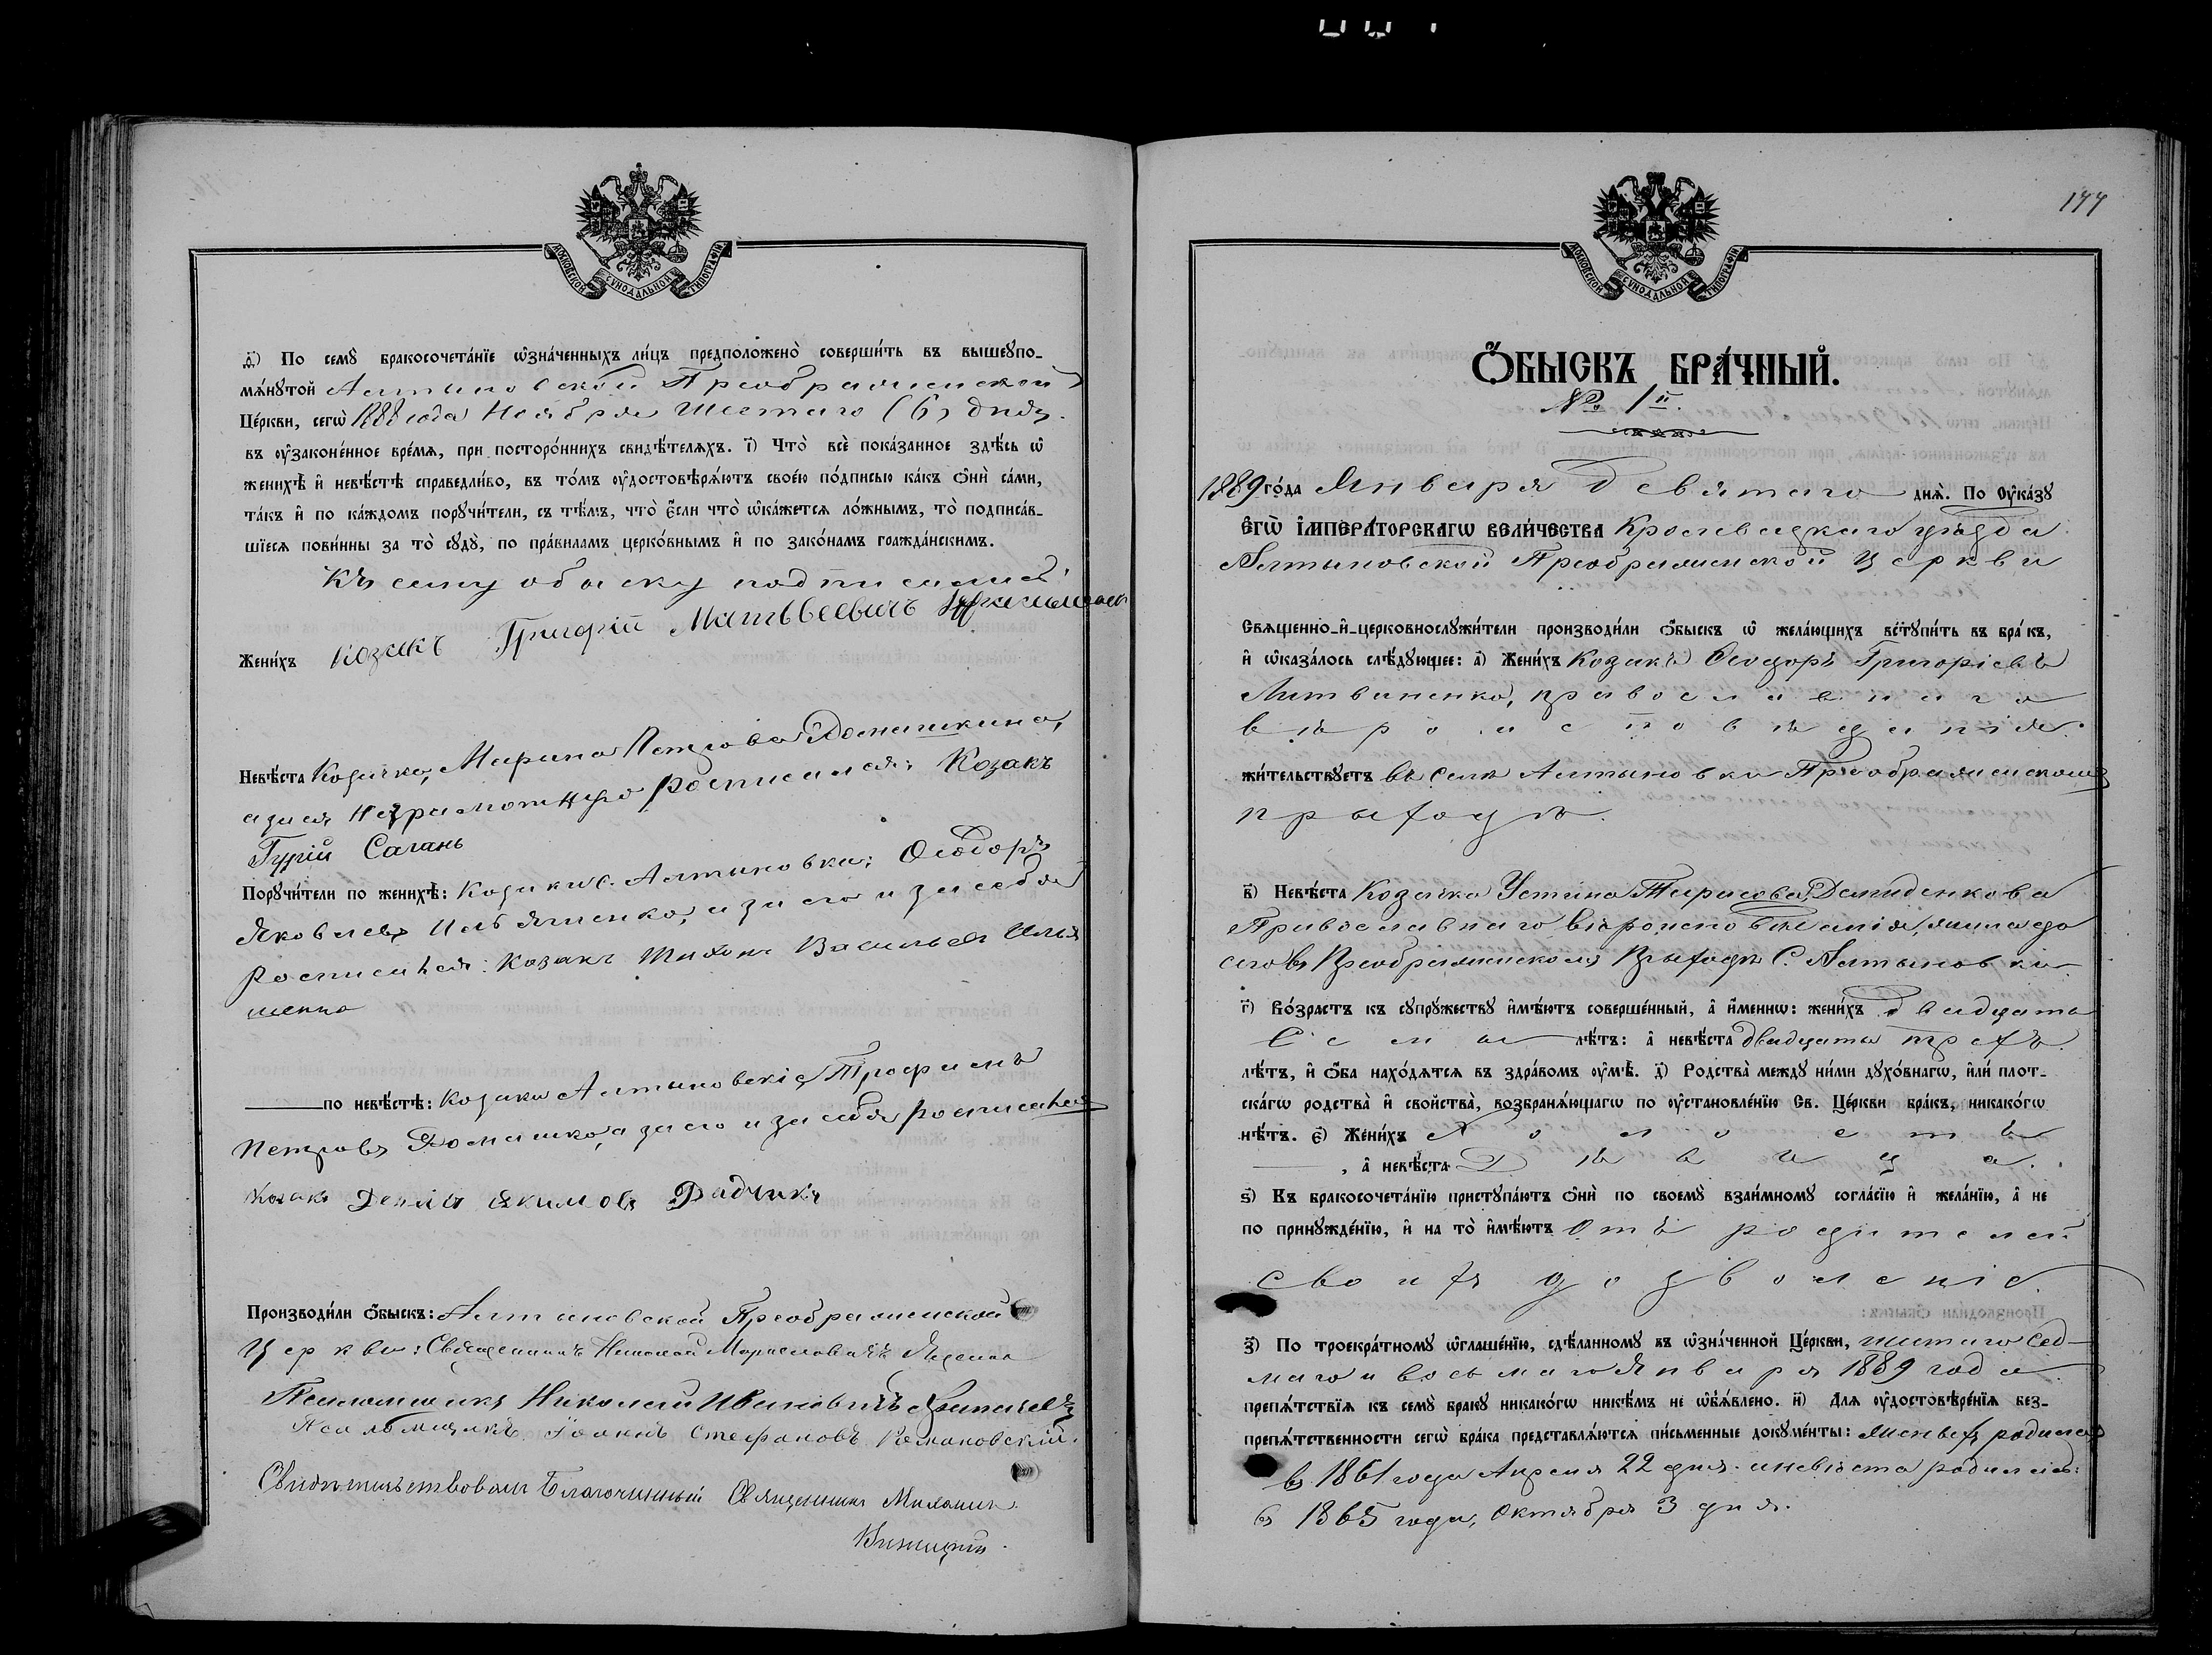 МОСКОВСКОЙ СѴНОДАЛЬНОЙ ТИПОГРАФІИ
ѳ҃) По семꙋ̀ бракосочета́нїе ѡ҆зна́ченныхъ ли́цъ предположено̀ соверши́ть въ вышеꙋпо-
мѧ́нꙋтой Алтыновской Преображенской
Це́ркви, сегѡ̀ 1888 года Ноября шестаго (6) дня,
въ ᲂу҆законе́нное вре́мѧ, при посторо́ннихъ свидѣ́телѧхъ. і҃) Что̀ всѐ пока́занное здѣ́сь ѡ҆
женихѣ̀ и҆ невѣ́стѣ справедли́во, въ то́мъ ᲂу҆достовѣрѧ́ютъ свое́ю по́дписью ка́къ ѻ҆нѝ са́ми,
та́къ и҆ по ка́ждомъ порꙋчи́тели, съ тѣ́мъ, что̀ є҆́сли что̀ ѡ҆ка́жетсѧ ло́жнымъ, то̀ подписа́в-
шїесѧ пови́нны за то̀ сꙋдꙋ̀, по пра́виламъ церко́внымъ и҆ по зако́намъ гражда́нскимъ.
Къ сему обыску подписались:
Жени́хъ козакъ Григорій Матвѣевичъ
Невѣ́ста Козачка, Марина Петрова Ромашкина,
а за ея Неграмотную росписался: Козакъ
Гурій Сагань
Порꙋчи́тели по женихѣ̀: Козаки с. Алтыновки: Ѳеодоръ
Яковлевъ Ильяшенко, а за его и за себя
росписался: козакъ Тихонъ Васильевъ Илья
шенко
по невѣ́стѣ: Козаки Алтыновскіе Трофимъ
Петровъ Ромашко, а за его и за себя росписался
козакъ Данила Якимовъ Радчикъ
Производи́ли ѻ҆́быскъ: Алтыновской Преображенской
Церкви: Священникъ Николай
Псаломщикъ Николай Ивановичъ
Псаломщикъ Іоаннъ Стефановъ Романовскій.
Свидѣтельствовалъ Благочинный Священникъ
177
МОСКОВСКОЙ СѴНОДАЛЬНОЙ ТИПОГРАФІИ
Ѻ҆́БЫСКЪ БРА́ЧНЫЙ.
№ 1й.
1889 го́да Января Девятаго днѧ̀. По Оу҆ка́зꙋ
Є҆ГѠ̀ І҆МПЕРА́ТОРСКАГѠ ВЕЛИ́ЧЕСТВА Кролевецкаго уѣзда
Алтыновской Преображенской Церкви
Свѧщенно-и҆-церковнослꙋжи́тели производи́ли ѻ҆́быскъ ѡ҆ жела́ющихъ встꙋпи́ть въ бра́къ,
и҆ ѡ҆каза́лось слѣ́дꙋющее: а҃) Жени́хъ Козакъ Ѳеодоръ Григоріевъ
Литвиненко, православнаго
вѣроисповѣданія.
жи́тельствꙋетъ въ селѣ Алтыновки Преображенскомъ
приходѣ.
в҃) Невѣ́ста Козачка Устина Тарасова Демиденкова
Православнаго вѣроисповѣданія, жила до
сего въ Преображенскомъ Приходѣ С. Алтыновки.
г҃) Во́зрастъ къ сꙋпрꙋ́жествꙋ и҆мѣ́ютъ соверше́нный, а҆ и҆́менно: жени́хъ двадцати
семи лѣ́тъ: а҆ невѣ́ста двадцати трехъ
лѣ́тъ, и҆ ѻ҆́ба нахо́дѧтсѧ въ здра́вомъ ᲂу҆мѣ̀. д҃) Родства̀ междꙋ ни́ми дꙋхо́внагѡ, и҆лѝ плот-
ска́гѡ родства̀ и҆ сво́йства̀, возбранѧ́ющагѡ по ᲂу҆становле́нїю Св. Це́ркви бра́къ, никако́гѡ
нѣ́тъ. є҃) Жени́хъ холостъ
, а҆ невѣ́ста Дѣвица.
ѕ҃) Къ бракосочета́нїю пристꙋпа́ютъ ѻ҆нѝ по своемꙋ̀ взаи́мномꙋ согла́сїю и҆ жела́нїю, а҆ не
по принꙋжде́нїю, и҆ на то̀ и҆мѣ́ютъ Отъ родителей
своихъ дозволеніе.
з҃) По троекра́тномꙋ ѡ҆глаше́нїю, сдѣ́ланномꙋ въ ѡ҆зна́ченной Це́ркви, шестаго сед-
маго и восьмаго Января 1889 года
препѧ́тствїѧ къ семꙋ̀ бракꙋ никако́гѡ никѣ́мъ не ѡ҆б̾ѧ́влено. и҃) Для ᲂу҆достовѣре́нїѧ без-
препѧ́тственности сегѡ̀ бра́ка представлѧ́ютсѧ пи́сьменные докꙋме́нты: Женихъ родился
въ 1861 года Апреля 22 дня. а невѣста родилась:
въ 1865 года, Октября 3 дня.